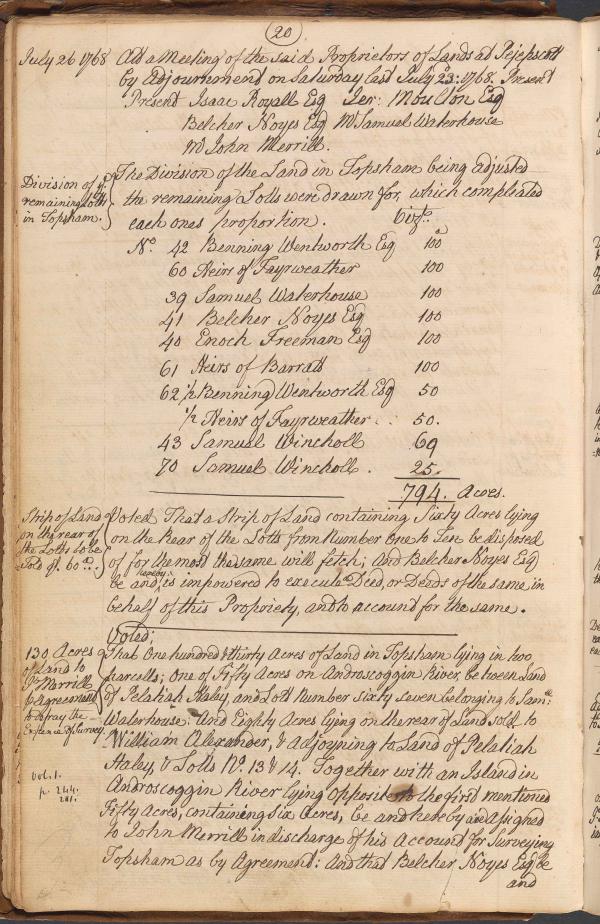 20
July 26 1768 Att a Meeting of the said Proprietors of Lands at Pejepscott
by Adjournment on Saturday last July 23: 1768. Present
Present Isaac Royall Esq Jer: Moulton Esq
Belcher Noyes Esq Mr Samuel Waterhouse
Mr John Merrill.
Division of ye
remaining Lotts
in Topsham.
The Division of the Land in Topsham being adjusted
the remaining Lotts were drawn for, which compleated
each ones proportion. Vizt.
No. 42 Benning Wentworth Esq 100 a
60 Heirs of Fayrweather 100
39 Samuel Waterhouse 100
41 Belcher Noyes Esq 100
40 Enoch Freeman Esq 100
61 Heirs of Barratt 100
62 1/2 Benning Wentworth Esq 50
1/2 Heirs of Fayrweather 50.
43 Samuel Wincholl 69
70 Samuel Wincholl. 25.
794. Acres.
Strip of Land
on the rear of
the Lotts to be
Sold of. 60 a.
Voted That a Strip of Land containing Sixty Acres lying
on the Rear of the Lotts from Number One to Ten be disposed
of for the most the same will fetch; And Belcher Noyes Esq
be and hereby is impowered to execute a Deed, or Deeds of the same in
behalf of this Propriety, and to account for the same.
Voted;
130 Acres
of Land to
Jno Merrill
p Agreement
to defray the
Expence of Survey.
That One hundred & thirty Acres of Land in Topsham lying in two
parcells; One of Fifty Acres on Androscoggin River, between Land
of Pelatiah Haley, and Lott Number sixty seven belonging to Samll
Waterhouse; And Eighty Acres lying on the rear of Land sold to
William Alexander, & adjoyning to Land of Pelatiah
Haley, & Lotts No. 13 & 14. Together with an Island in
Androscoggin River lying opposite to the first mentioned
Fifty Acres, containing six Acres, be and hereby are assigned
to John Merrill in discharge of his Account for Surveying
Topsham as by Agreement: And that Belcher Noyes Esq be
and
vol. 1.
p. 244.